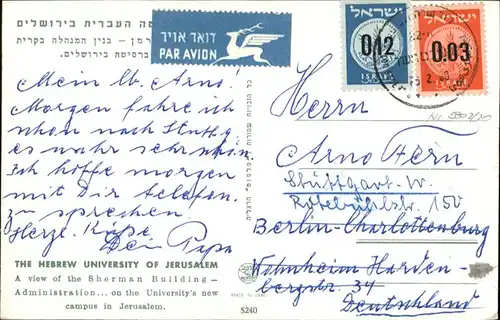 האוניברסיטה העברית בירושלים
שרמן - בנין המנהלה בקרית
האוניברסיטה בירושלים.
דואר אויר
PAR AVION
ישראל
0.12
ISRAEL
ישראל
0.03
ISRAEL
Mein lb. Arno!
Morgen fahre ich
schon nach Stuttg.
es wahr sehr schön
Ich hoffe morgen
mit Dir telefon.
zu sprechen!
Herzl. Küsse
Dein Papa
THE HEBREW UNIVERSITY OF JERUSALEM
A view of the Sherman Building -
Administration... on the University's new
campus in Jerusalem.
כל הזכויות שמורות
MADE IN ISRAEL
5240
Herrn
Arno Fern
Stuttgart-W.
Rotebühlstr. 150
Berlin-Charlottenburg
Wohnheim Harden-
bergstr. 34
Deutschland